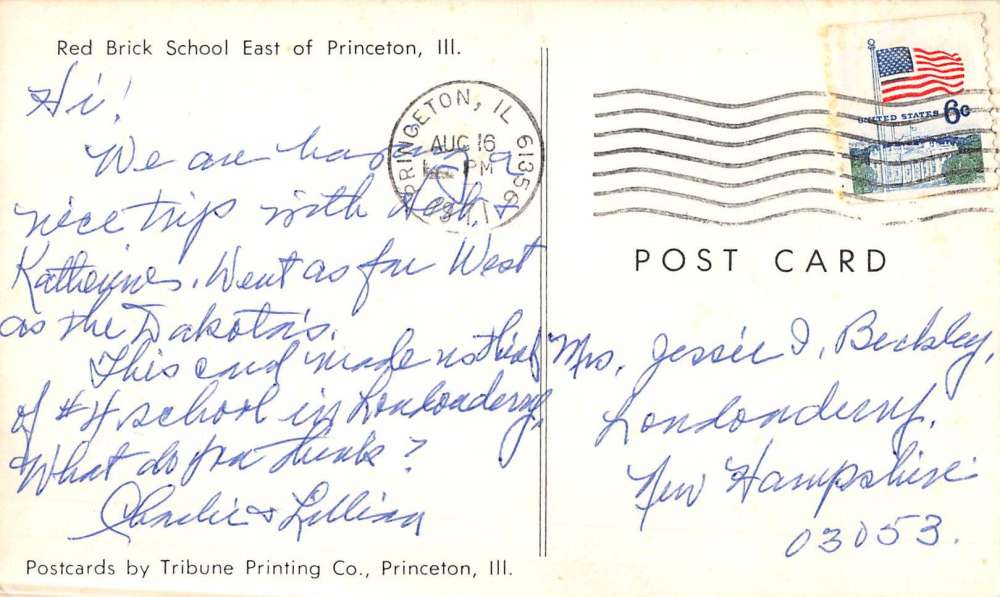 Red Brick School East of Princeton, Ill.
Hi!
We are having a
nice trip with Herb &
Katherine. Went as far West
as the Dakota's.
This card made us think
of #4 school in Londonderry.
What do you think?
Charlie & Lillian
Postcards by Tribune Printing Co., Princeton, Ill.
PRINCETON, IL 61356
AUG 16
PM
UNITED STATES 6c
POST CARD
Mrs. Jessie I. Beckley,
Londonderry,
New Hampshire
03053.